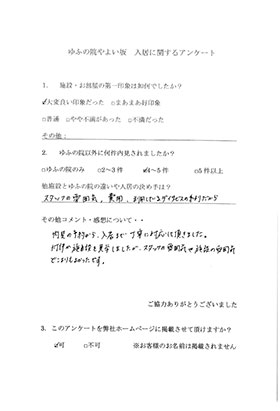 ゆふの院やよい坂 入居に関するアンケート
1. 施設・お部屋の第一印象は如何でしたか?
☑大変良い印象だった □まあまあ好印象
□普通 □やや不満があった □不満だった
その他:
2. ゆふの院以外に何件内見されましたか?
□ゆふの院のみ □2~3件 ☑4~5件 □5件以上
他施設とゆふの院の違いや入居の決め手は?
スタッフの雰囲気、費用、利用しているデイサービスの
その他コメント・感想について・・
内見の予約から、入居まで丁寧に対応して頂きました。
スタッフの雰囲気や施設の雰囲気
どこよりもよかったです。
ご協力ありがとうございました
3. このアンケートを弊社ホームページに掲載させて頂けますか?
☑可 □不可 ※お客様のお名前は掲載されません